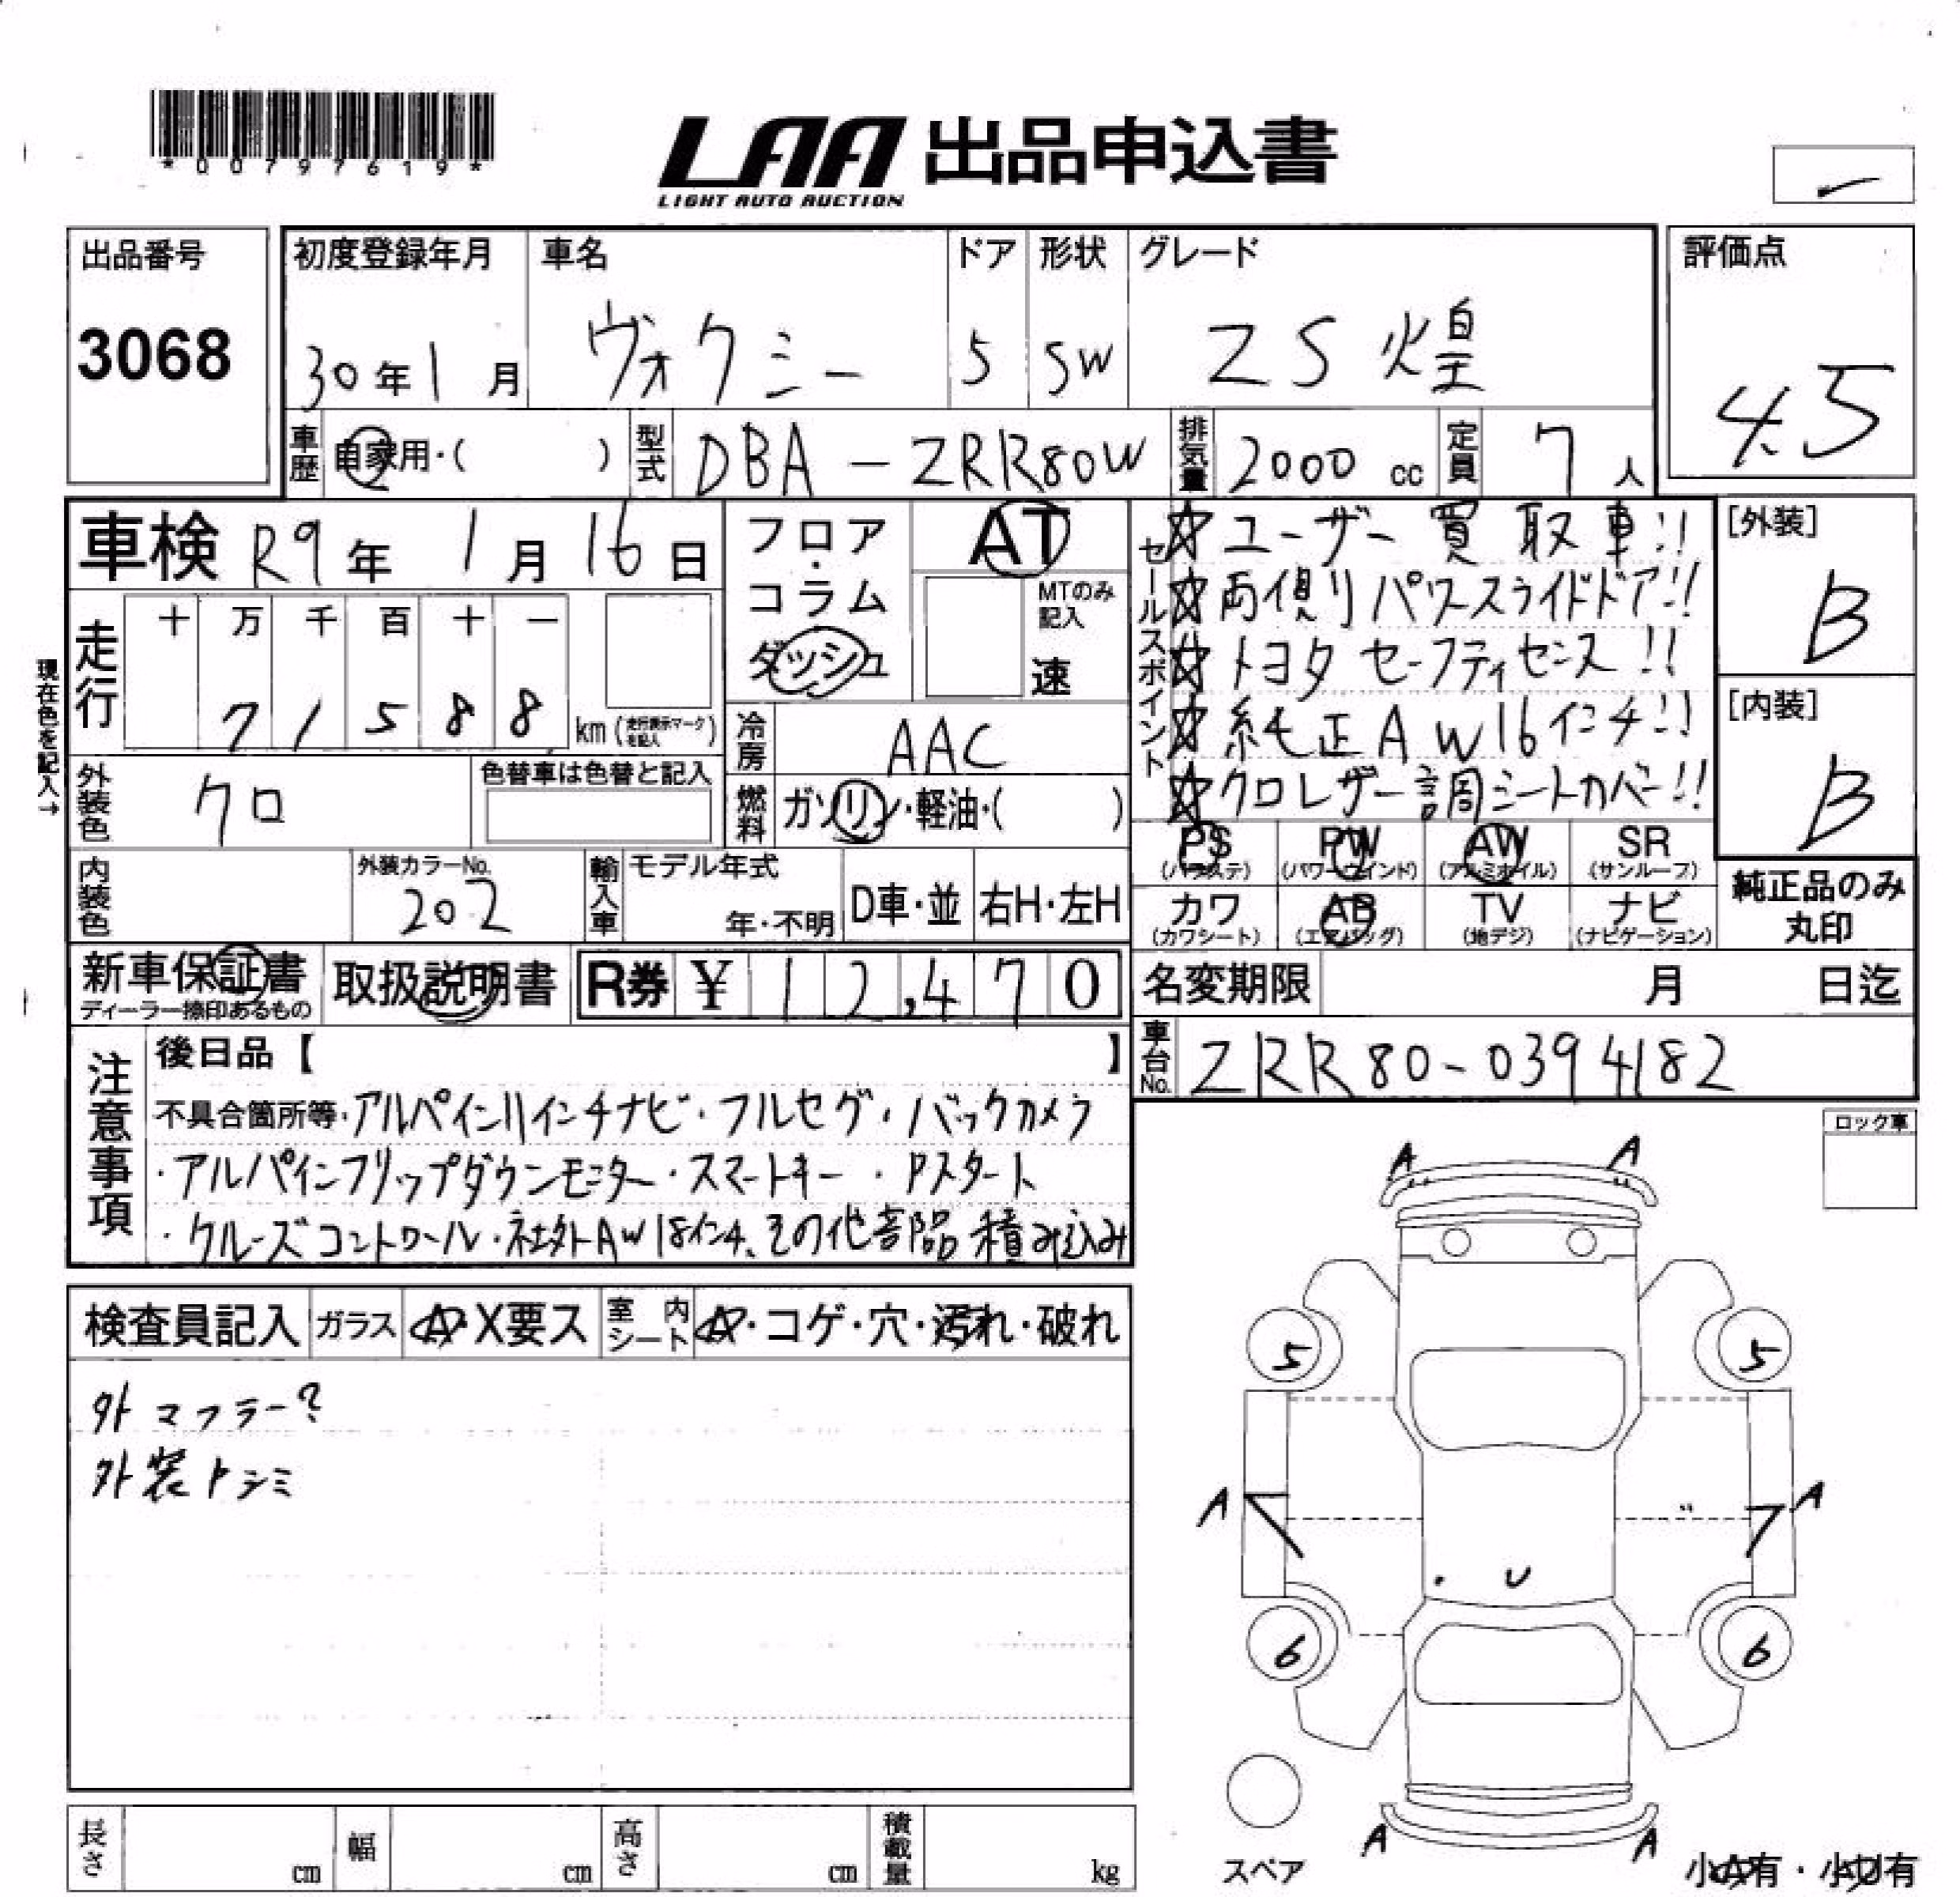 *00797619*
LAA 出品申込書
LIGHT AUTO AUCTION
出品番号 初度登録年月 車名 ドア 形状 グレード 評価点
3068 30年1月 ヴォクシー 5 SW ZS 煌 4.5
車歴 自家用・( ) 型式 DBA-ZRR80W 排気量 2000 cc 定員 7人
車検 R9年1月16日 フロア・コラム ダッシュ AT MTのみ記入 速
セールスポイント
☆ユーザー買取車!!
☆両側リパワースライドドア!!
☆トヨタセーフティセンス!!
☆純正AW16インチ!!
☆クロレザー調シートカバー!!
[外装] B
[内装] B
現在色を記入→
走行 十 万 千 百 十 一
71588 km (走行表示マークを記入)
冷房 AAC
外装色 クロ 色替車は色替と記入 燃料 ガソリン・軽油・( )
PS (パワステ) PW (パワーウインド) AW (アルミホイル) SR (サンルーフ)
カワ (カワシート) AB (エアバッグ) TV (地デジ) ナビ (ナビゲーション)
純正品のみ丸印
内装色 外装カラーNo. 202 輸入車 モデル年式 年・不明 D車・並 右H・左H
新車保証書 ディーラー捺印あるもの 取扱説明書 R券 ¥12,470 名変期限 月 日迄
車台No. ZRR80-0394182
注意事項 後日品【 】
不具合箇所等・アルパイン11インチナビ・フルセグ・バックカメラ
・アルパインフリップダウンモニター・スマートキー・Pスタート
・クルーズコントロール・社外AW18インチ、その他部品積み込み
ロック車
検査員記入 ガラス A・X要ス 室内シート A・コゲ・穴・汚れ・破れ
外マフラー?
外装トシミ
A A
5 5
A A
U
6 6
A A
スペア
小A有・小U有
長さ cm 幅 cm 高さ cm 積載量 kg